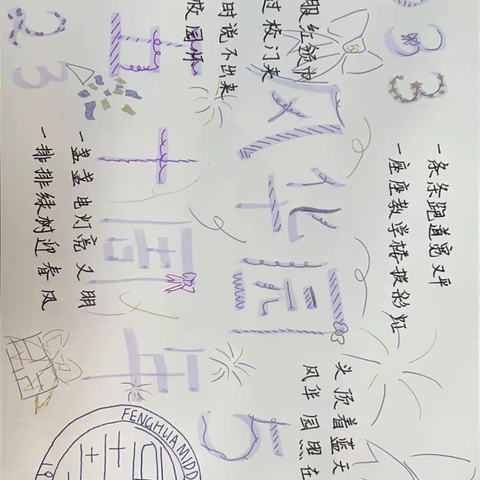 33
一条条跑道宽又平
一座座教学楼披彩虹
头顶着蓝天
风华园照在
服红领巾
过校门来
时说不出来
校园师
风华园5
五十周年
23
一盏盏电灯亮又明
一排排绿树迎春风
FENGHUA MIDD